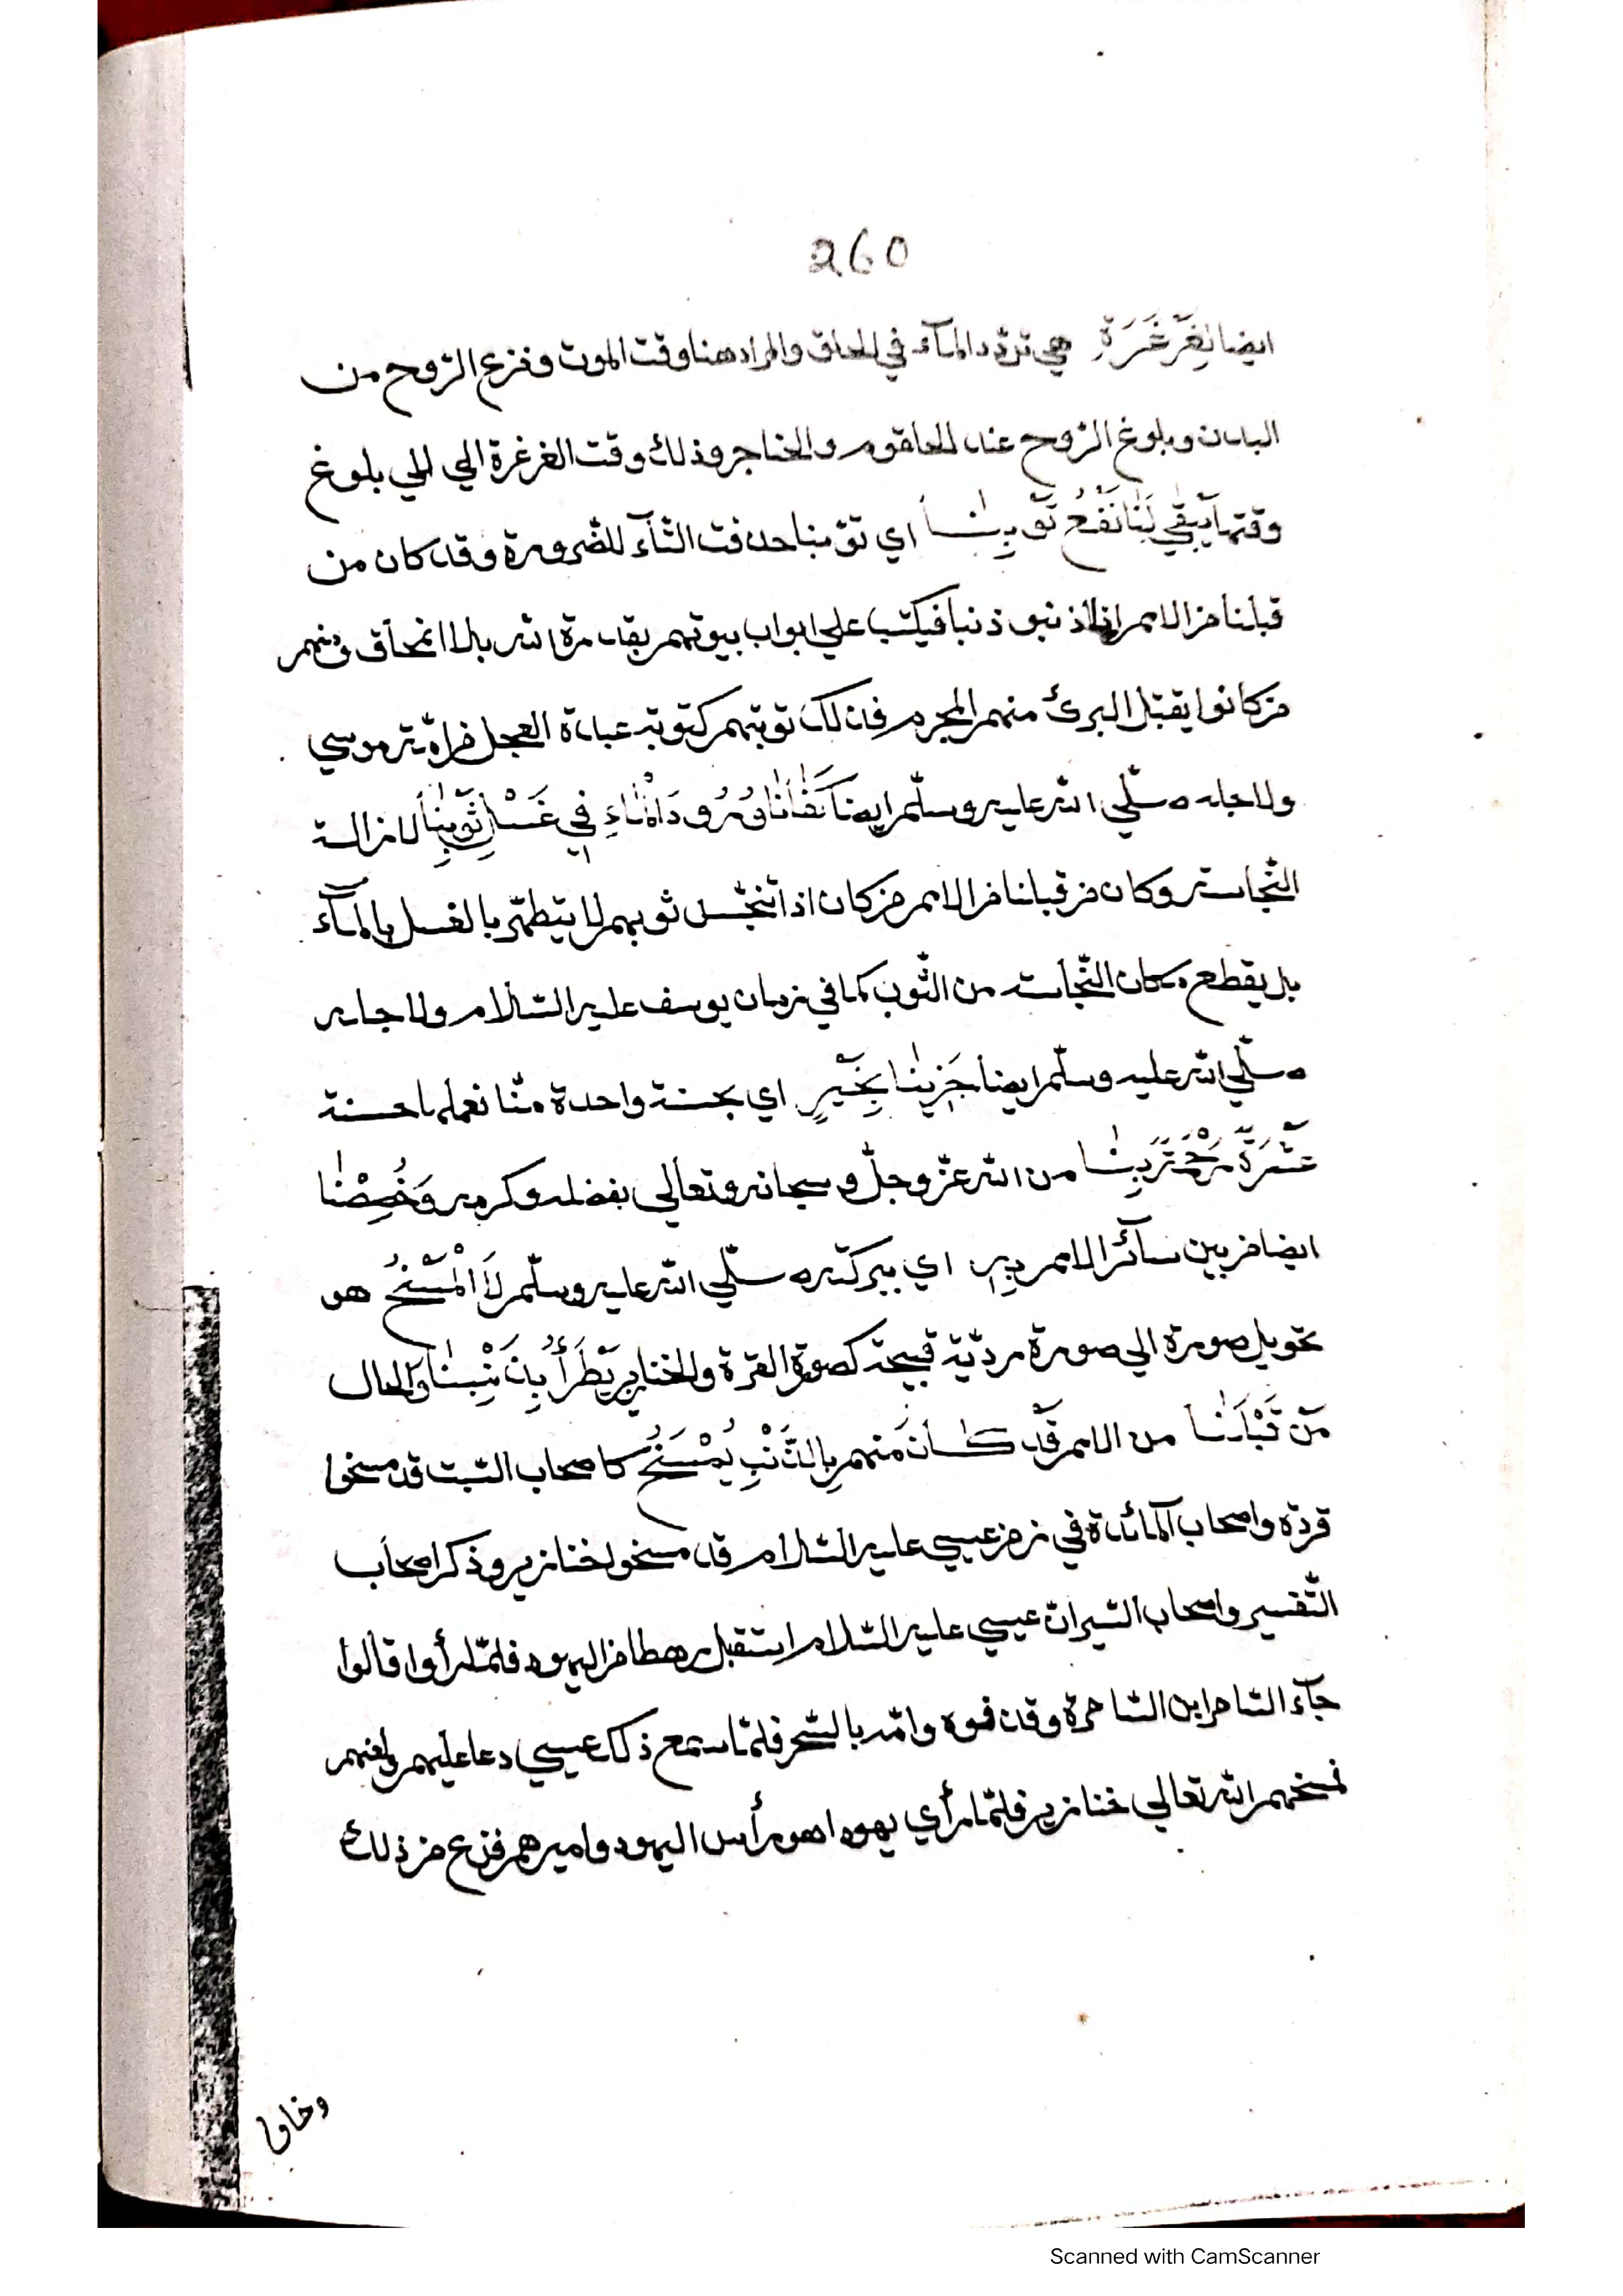 260
ايضا لِغَرْغَرَةِ هي تردّد المآء في الحلق والمراد هنا وقت الموت ونزع الرّوح من
البدن وبلوغ الرّوح عند الحلقوم والخناجر وذلك وقت الغرغرة الي الي بلوغ
وقتها يَبْقٰي لَنَا نَفْعُ تَوْبِنٰا اي توبتنا حذفت التّآء للضّرورة وقد كان من
قبلنا من الامم اذا اذنبو ذنبا فيكتب علي ابواب بيوتهم بقدرة الله بلا انمحآق ومنهم
من كانوا يقتل البرئ منهم المجرم فذلك توبتهم كتوبة عبادة العجل من امّة موسي
ولاجله صلّي الله عليه وسلّم ايضا كَفٰانٰا وُرُودَ الْمٰاءِ فِي غَسْلِ ثَوْبِنٰا لازالة
النّجاسة وكان من قبلنا من الامم من كان اذا تنجّس ثوبهم لا يتطهّر بالغسل بالمآء
بل يقطع مكان النّجاسة من الثّوب كما في زمان يوسف عليه السّلام ولاجله
صلّي الله عليه وسلّم ايضا جَزِينٰا بِخَيْرٍ اي بحسنة واحدة منّا نعملها حسنة
عَشْرَةً رَحْمَةَ رَبِّنٰا من الله عزّ وجلّ وسبحانه وتعالي بفضله وكرمه وَخُصِصْنٰا
ايضا من بين سآئر الامم بِهِ اي ببركته صلّي الله عليه وسلّم لاَ الْمَسْخُ هو
تحويل صورة الي صورة رديّة قبيحة كصورة القردة والخنازير يَطْرَأُ بِذَنْبِنٰا وَ الحال
مَنْ قَبْلَنٰا من الامم قَدْ كٰانَ منهم بِالذَّنْبِ يُمْسَخُ كاصحاب السّبت قد مسخوا
قردة واصحاب المآئدة في زمن عيسي عليه السّلام قد مسخوا خنازير وذكر اصحاب
التّفسير واصحاب السّير ان عيسي عليه السّلام استقبل رهطا من اليهود فلمّا رأوا قالوا
جآء السّاحر ابن السّاحرة وقذفوه وامّه بالسّحر فلمّا سمع ذلك عيسي دعا عليهم ولعنهم
فمسخهم الله تعالي خنازير فلمّا رأي يهودا هو رأس اليهود واميرهم فزع من ذلك
وخاف
Scanned with CamScanner